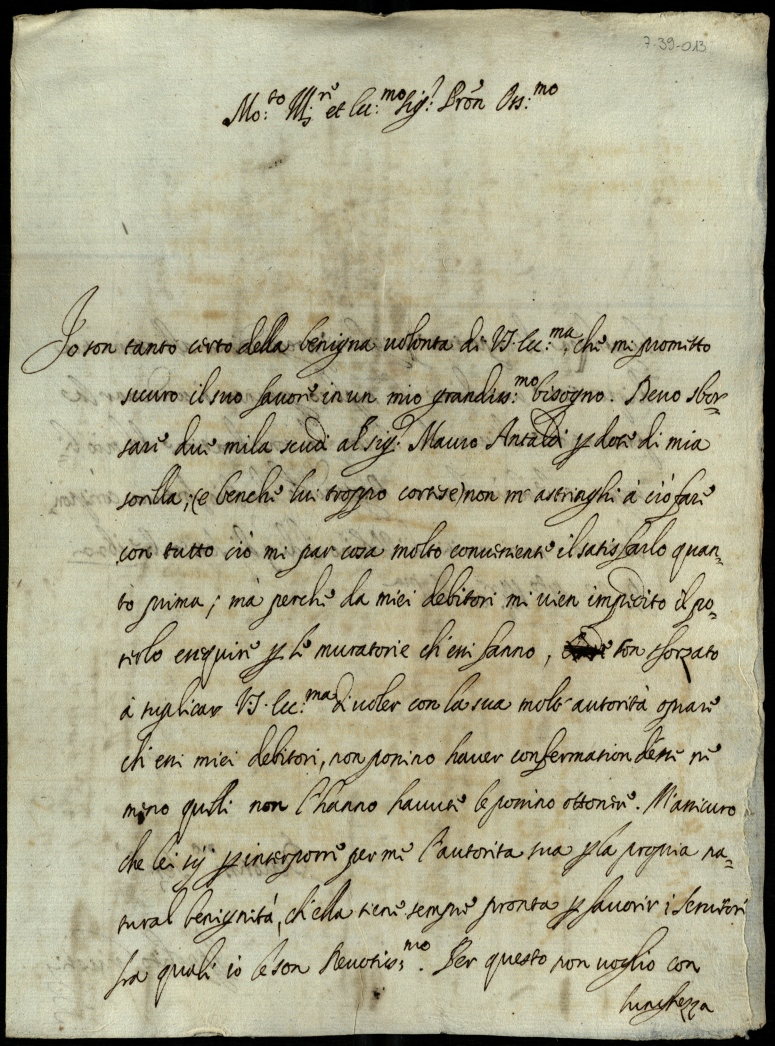 7-39-013
Mo:to Ill:re et Ecc:mo Sig.r Pron Oss:mo
Io son tanto certo della benigna volontà di V.S. Ecc:ma, che mi prometto
sicuro il suo favore in un mio grandiss:mo bisogno. Devo sbor=
sare due mila scudi al Sig.r Mauro Antaldi p dote di mia
sorella; (e benche lui troppo cortese) non m'astringhi à ciò fare
con tutto ciò mi par cosa molto conveniente il satisfarlo quan=
to prima; mà perche da miei debitori mi vien impedito il po=
terlo esequire p le muratorie ch'essi fanno, son sforzato
à suplicar V.S. Ecc:ma di voler con la sua molt'autorità oprare
ch'essi miei debitori, non possino haver confermation d'esse ne
meno quelli non l'hanno havute le possino ottenere. M'assicuro
che lei sij p interporre per me l'autorita sua p la propria na=
tural benignità, ch'ella tiene sempre pronta p favorir i servitori
fra quali io le son Devotiss:mo. Per questo non voglio con
lunghezza